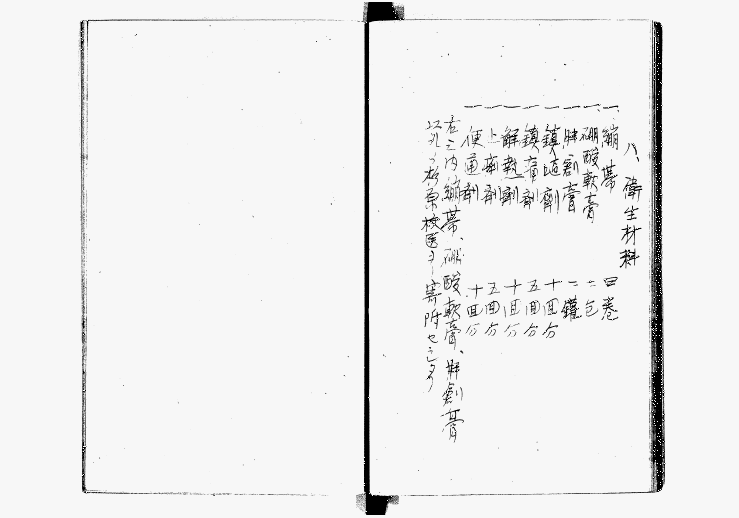 八、衛生材料
一 繃帯 四巻
一 硼酸軟膏 二包
一 絆創膏 二罐
一 鎮咳劑 十回分
一 鎮痛劑 五回分
一 解熱劑 十回分
一 止痢劑 五回分
一 便通劑 十回分
右之内繃帯、硼酸軟膏、絆創膏
以外ハ松原校医ヨリ寄附セシモノ